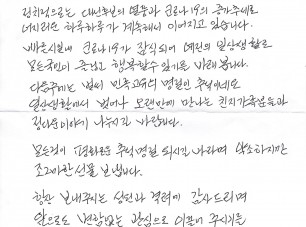 정치적으로는 대선후보의 열풍과 코로나19의 증가추세로
어지러운 하루하루가 계속해서 이어지고 있습니다.
빠른시일에 코로나19가 잠식되어 예전의 일상생활로
모든국민이 즐겁고 행복할수 있기를 바래봅니다.
다음주에는 벌써 민족고유의 명절인 추석이네요
일상생활에서 벗어나 오랜만에 만나는 친지가족분들과
정다운이야기 나누시길 바랍니다.
모든것이 평화로운 추석 명절 되시길 바라며 약소하지만
조그마한 선물 보냅니다.
항상 보내주시는 성원과 격려에 감사드리며
앞으로도 변함없는 관심으로 이끌어 주시기를